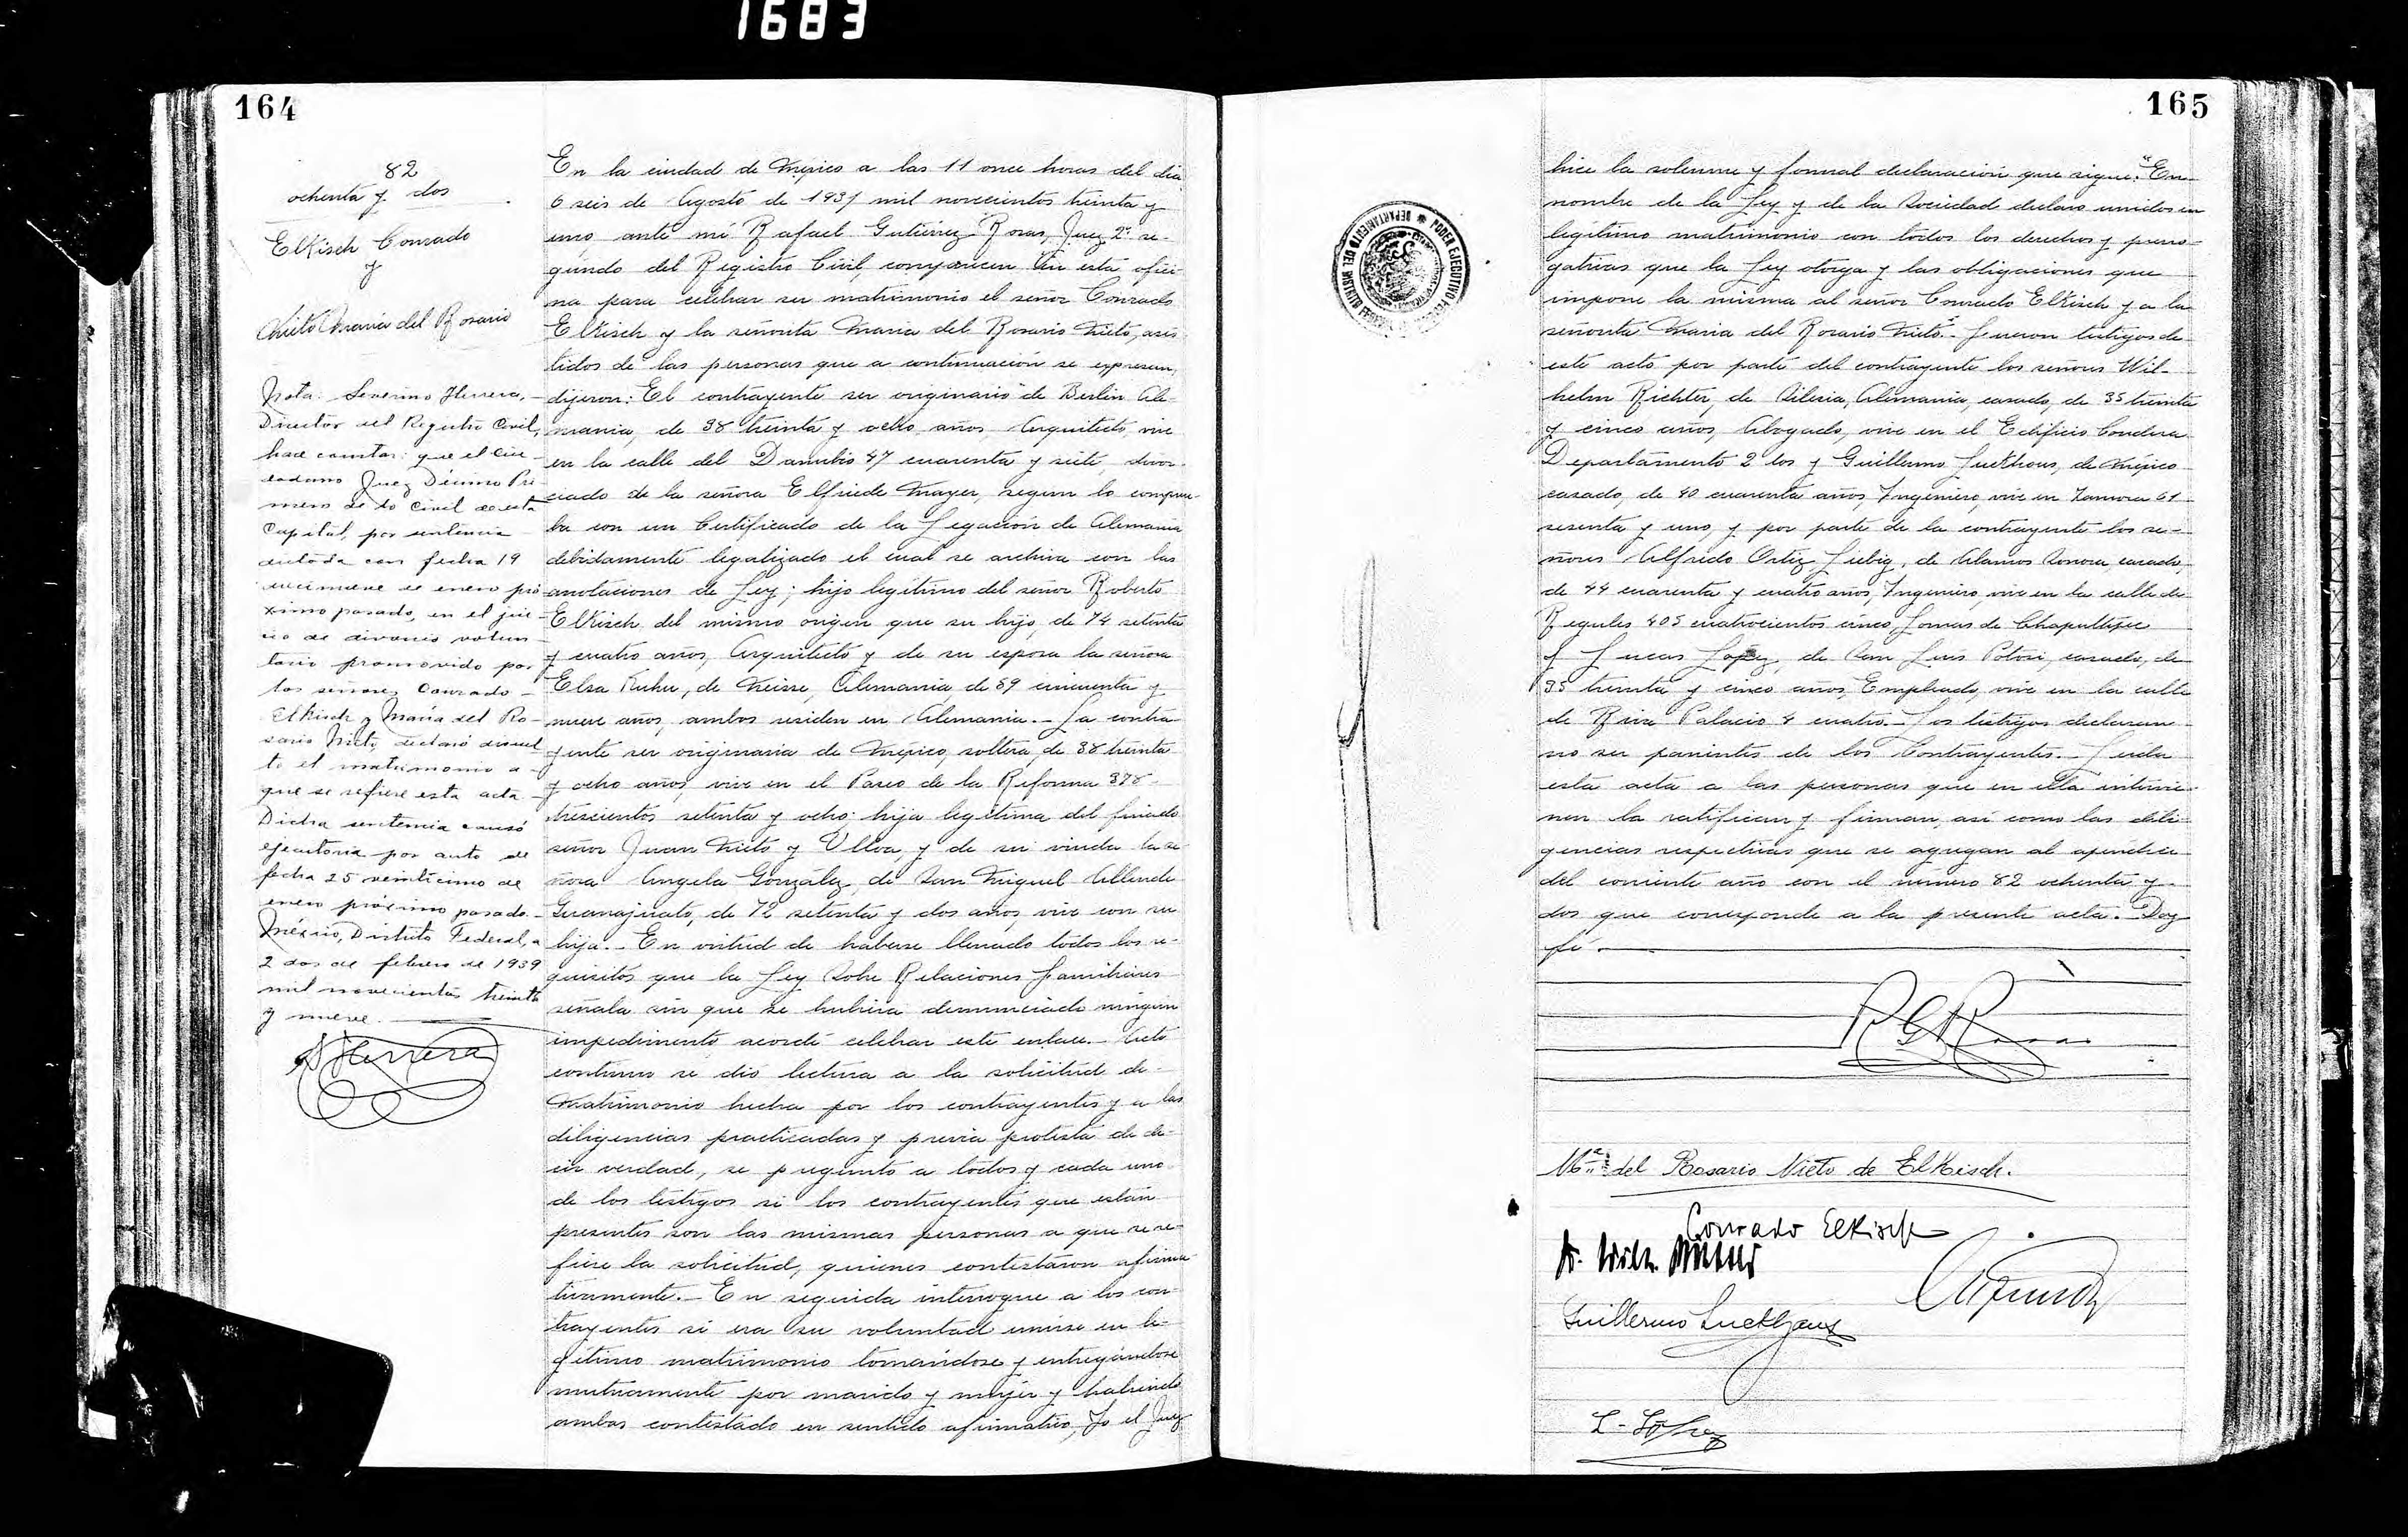 1683
164
82
ochenta y dos
Elkisch Conrado
y
Nieto Maria del Rosario
Nota: Severino Herrera,
Director del Registro Civil,
hace constar: que el Ciu-
dadano Juez Décimo Pri
mero de lo Civil de esta
Capital, por sentencia
dictada con fecha 19
diecinueve de enero pró
ximo pasado, en el jui-
cio de divorcio volun
tario promovido por
los señores Conrado
Elkisch y María del Ro-
sario Nieto, declaró disuel
to el matrimonio a
que se refiere esta acta.
Dicha sentencia causó
ejecutoria por auto de
fecha 25 veinticinco de
enero próximo pasado.-
México, Distrito Federal, a
2 dos de febrero de 1939
mil novecientos treinta
y nueve.
S Herrera
En la ciudad de Mexico a las 11 once horas del dia
6 seis de Agosto de 1931 mil novecientos treinta y
uno ante mi Rafael Gutiérrez Rosas, Juez 2º se-
gundo del Registro Civil, comparecen en esta ofici-
na para celebrar su matrimonio el señor Conrado
Elkisch y la señorita Maria del Rosario Nieto, asis
tidos de las personas que a continuación se expresan,
dijeron: El contrayente ser originario de Berlin Ale
mania, de 38 treinta y ocho años Arquitecto, vive
en la calle del Danubio 47 cuarenta y siete divor-
ciado de la señora Elfriede Mayer, segun lo comprue-
ba con un Certificado de la Legación de Alemania
debidamente legalizado el cual se archiva con las
anotaciones de Ley; hijo legitimo del señor Roberto
Elkisch del mismo origen que su hijo, de 74 setenta
y cuatro años, Arquitecto y de su esposa la señora
Elsa Kuhn, de Neisse, Alemania de 59 cincuenta y
nueve años, ambos residen en Alemania.- La contra
yente ser originaria de Mexico, soltera, de 38 treinta
y ocho años, vive en el Paseo de la Reforma 378
trescientos setenta y ocho: hija legitima del finado
señor Juan Nieto y Ulloa y de su viuda la se
ñora Angela González, de San Miguel Allende
Guanajuato, de 72 setenta y dos años, vive con su
hija.- En virtud de haberse llenado todos los re-
quisitos que la Ley Sobre Relaciones Familiares
señala sin que se hubiera denunciado ningún
impedimento acordé celebrar este enlace.- Acto
continuo se dió lectura a la solicitud de
Matrimonio hecha por los contrayentes y a las
diligencias practicadas y previa protesta de de-
cir verdad, se preguntó a todos y cada uno
de los testigos si los contrayentes que están
presentes son las mismas personas a que se re-
fiere la solicitud, quienes contestaron afirma
tivamente.- En seguida interrogue a los con-
trayentes si era su voluntad unirse en le-
gítimo matrimonio tomandose y entregándose
mutuamente por marido y mujer y habiendo
ambos contestado en sentido afirmativo, Yo el Juez
165
PODER EJECUTIVO FEDERAL * DEPARTAMENTO DEL DISTRITO FEDERAL
hice la solemne y formal declaración que sigue: "En
nombre de la Ley y de la Sociedad declaro unidos en
legitimo matrimonio con todos los derechos y prero-
gativas que la Ley otorga y las obligaciones que
impone la misma al señor Conrado Elkisch y a la
señorita Maria del Rosario Nieto".- Fueron testigos de
este acto por parte del contrayente los señores Wil-
helm Richter, de Silesia, Alemania, casado, de 35 treinta
y cinco años, Abogado, vive en el Edificio Condesa
Departamento 2 dos y Guillermo Luckhaus, de México
casado, de 40 cuarenta años, Ingeniero, vive en Zamora 61
sesenta y uno, y por parte de la contrayente los se-
ñores Alfredo Ortiz Liebig, de Alamos Sonora, casado,
de 44 cuarenta y cuatro años, Ingeniero, vive en la calle de
Regules 405 cuatrocientos cinco, Lomas de Chapultepec
y Lucas Lopez, de San Luis Potosi, casado, de
35 treinta y cinco años, Empleado, vive en la calle
de Riva Palacio 4 cuatro.- Los testigos declaran
no ser parientes de los Contrayentes.- Leida
esta acta a las personas que en ella intervie-
nen la ratifican y firman, asi como las dili
gencias respectivas que se agregan al apendice
del corriente año con el número 82 ochenta y
dos que corresponde a la presente acta. Doy
fé.
R G Rosas
Ma. del Rosario Nieto de Elkisch.
Conrado Elkisch
Dr. Wilh. Richter
Guillermo Luckhaus
L. López